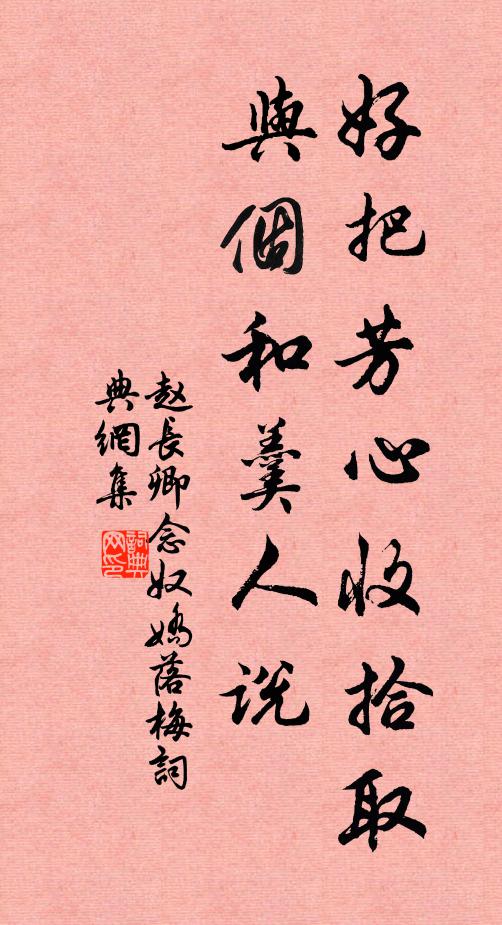 好把芳心收拾取
與個和羹人說
赵長卿念奴嬌落梅詞
典網集
詞典网印